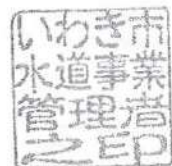 いわき市
水道事業
管理者
之印